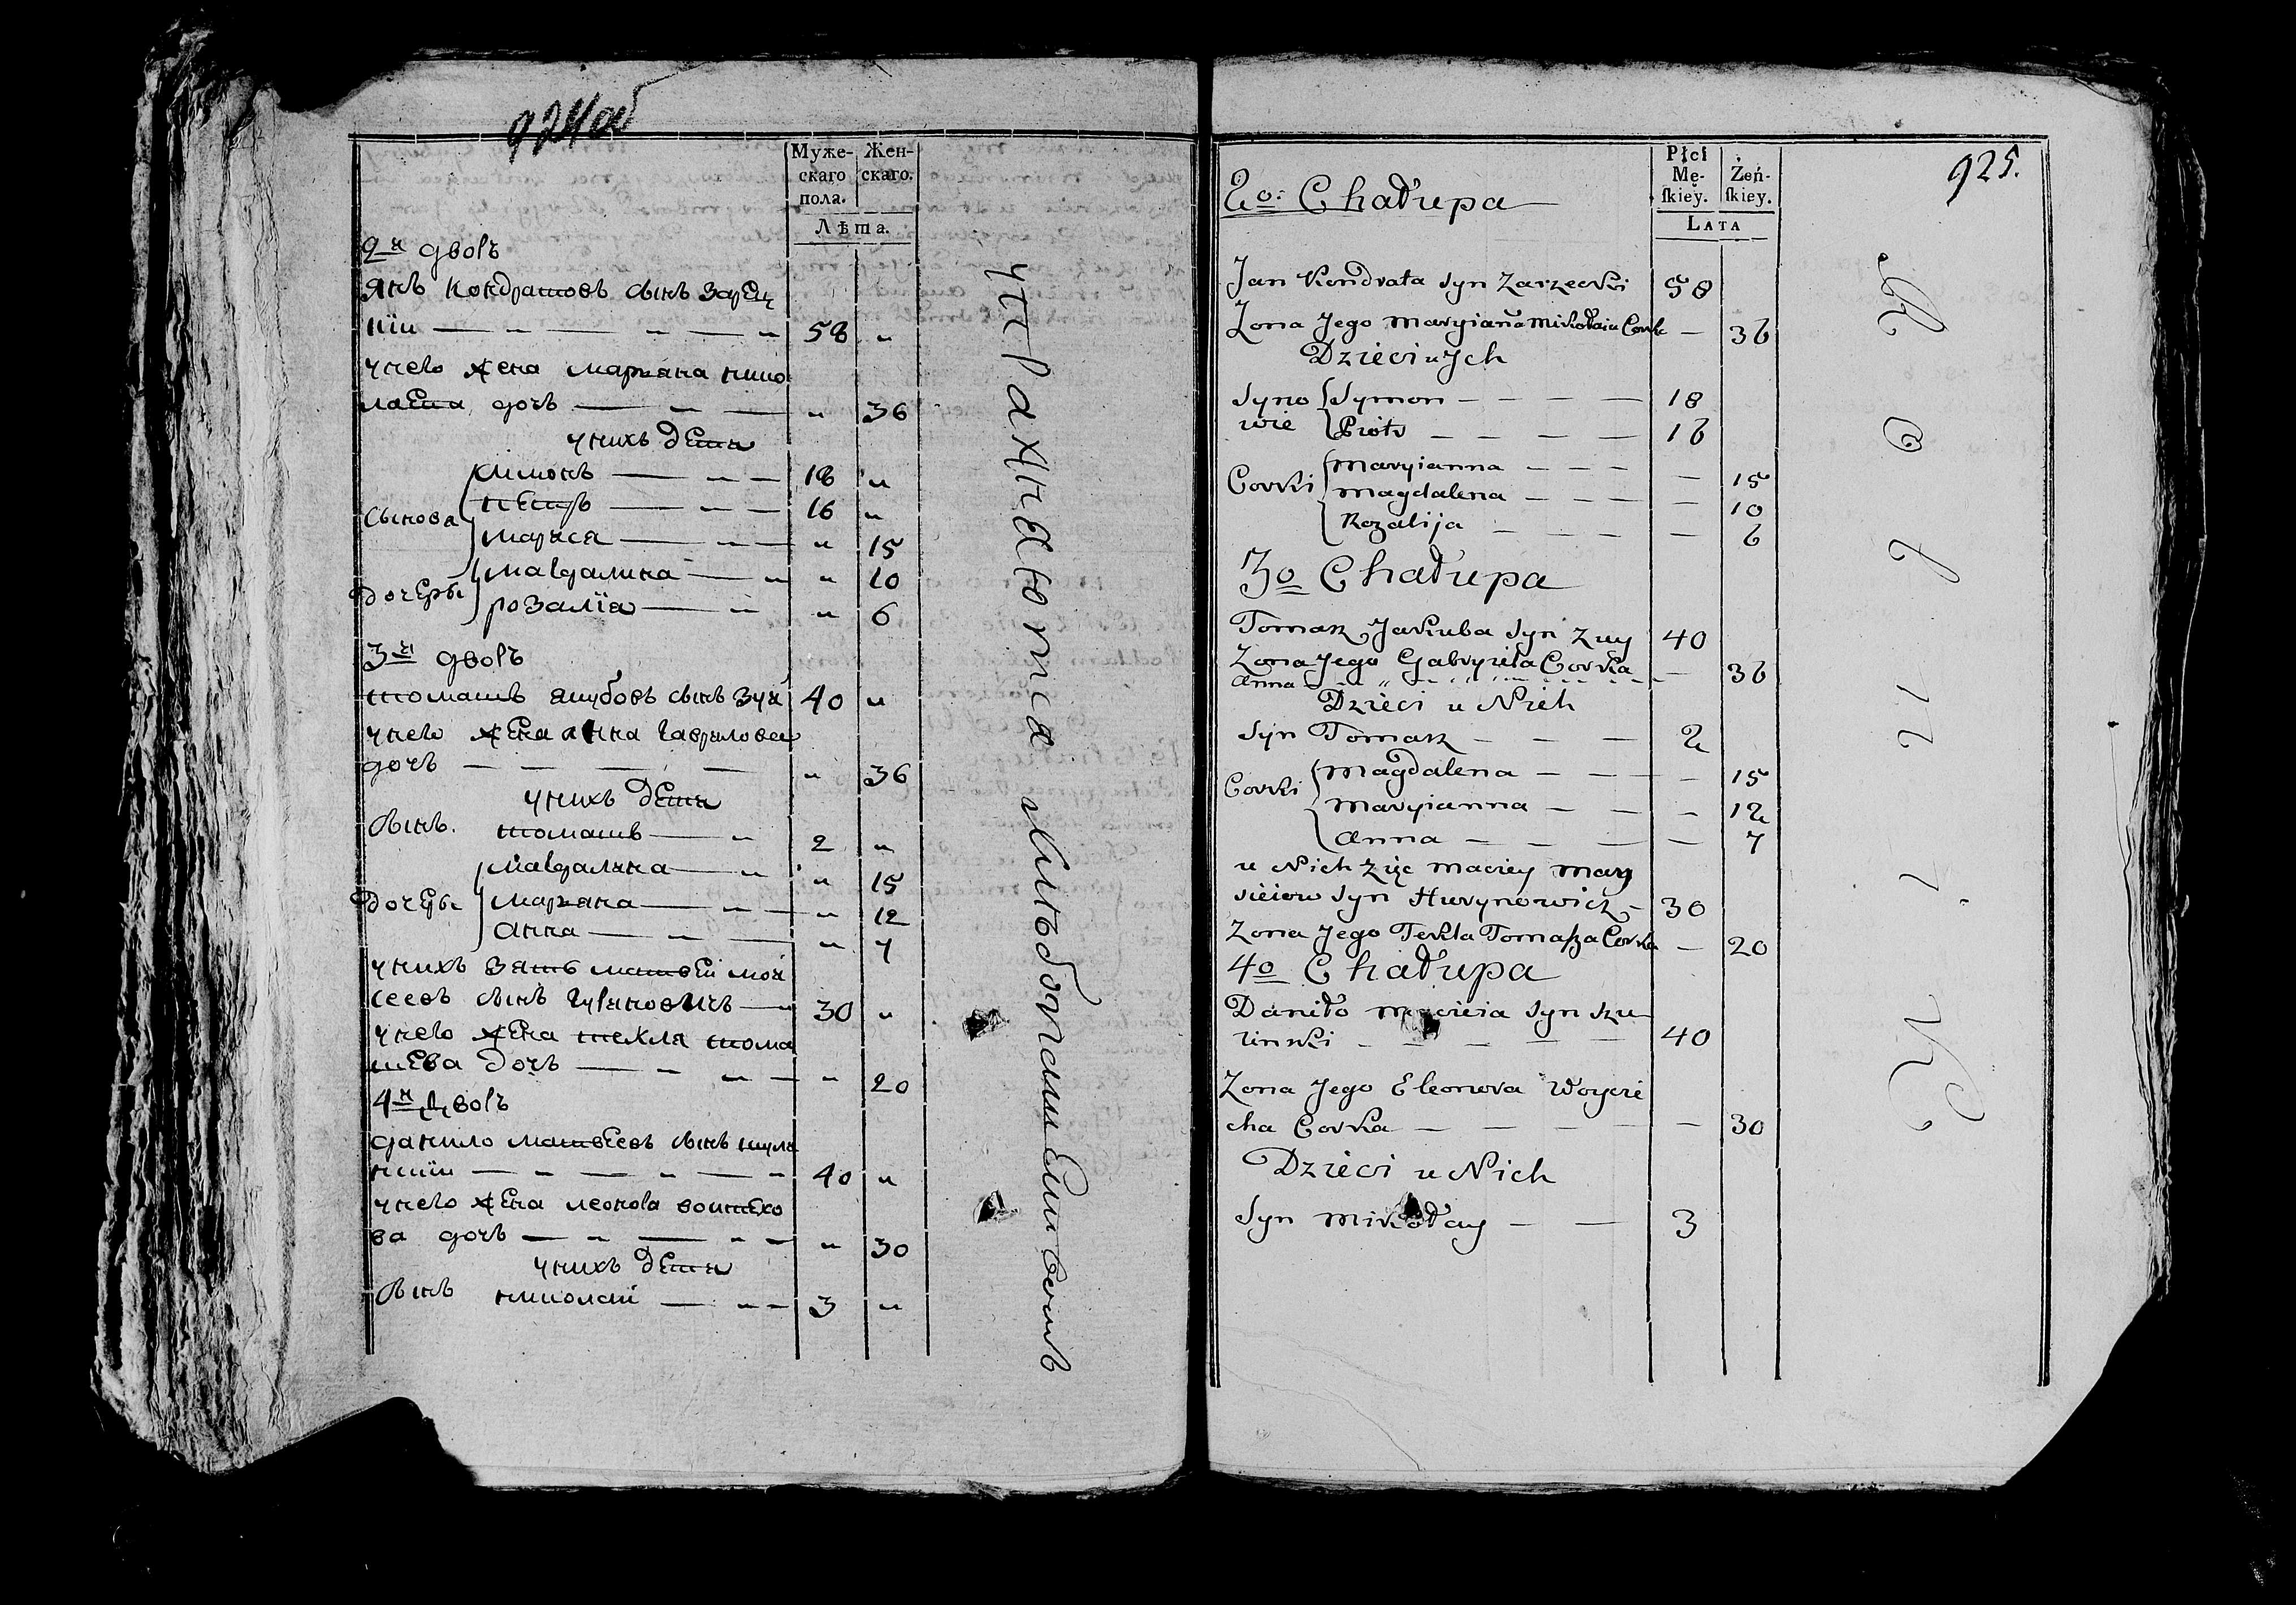 924об
Муже- Жен-
скаго скаго.
пола.
Лѣта.
2й дворъ
Янъ Кондратовъ сынъ Зарец
кіи 58 "
у него жена Марьяна Нико
лаева дочь " 36
у нихъ дети
Симонъ 18 "
Сынова Петръ 16 "
Марися " 15
Дочеры Магдалина " 10
Розаліа " 6
3й дворъ
Томашъ Якубовъ сынъ Зуй 40 "
у него жена Анна Гаврилова
дочь " 36
у нихъ дети
Сынъ Томашъ 2 "
Магдалина " 15
Дочеры Марьяна " 12
Анна " 7
у нихъ зять Матвей Мой
сеевъ сынъ Гуриновичъ 30 "
у него жена Текля Тома
шева дочь " 20
4й Дворъ
Данило Матвеевъ сынъ
40 "
у него жена Леонора Воитехо
ва дочь " 30
у нихъ дети
Сынъ Николай 3 "
925.
2o: Chałupa
Płci Męskiey. Żeńskiey.
LATA
Jan Kondrata Syn Zarzecki 58
Zona Jego Maryianna Mikołaia Corka — 36
Dzieci u Ych
Syno Symon 18
wie Piotr 16
Maryianna — 15
Corki Magdalena — 10
Rozalija — 6
3o Chałupa
Tomasz Jakuba Syn Zuy 40
Zona Jego Gabryiela Corka — 36
Anna
Dzieci u Nich
Syn Tomasz 2
Magdalena — 15
Corki Maryianna — 12
Anna — 7
u Nich Zięc Maciey Moy
sieiow Syn Hurynowicz 30
Zona Jego Tekla Tomasza Corka — 20
4o Chałupa
Daniło Macieia Syn Szu
linski 40
Zona Jego Eleonora Woycie
cha Corka — 30
Dzieci u Nich
Syn Mikołay 3